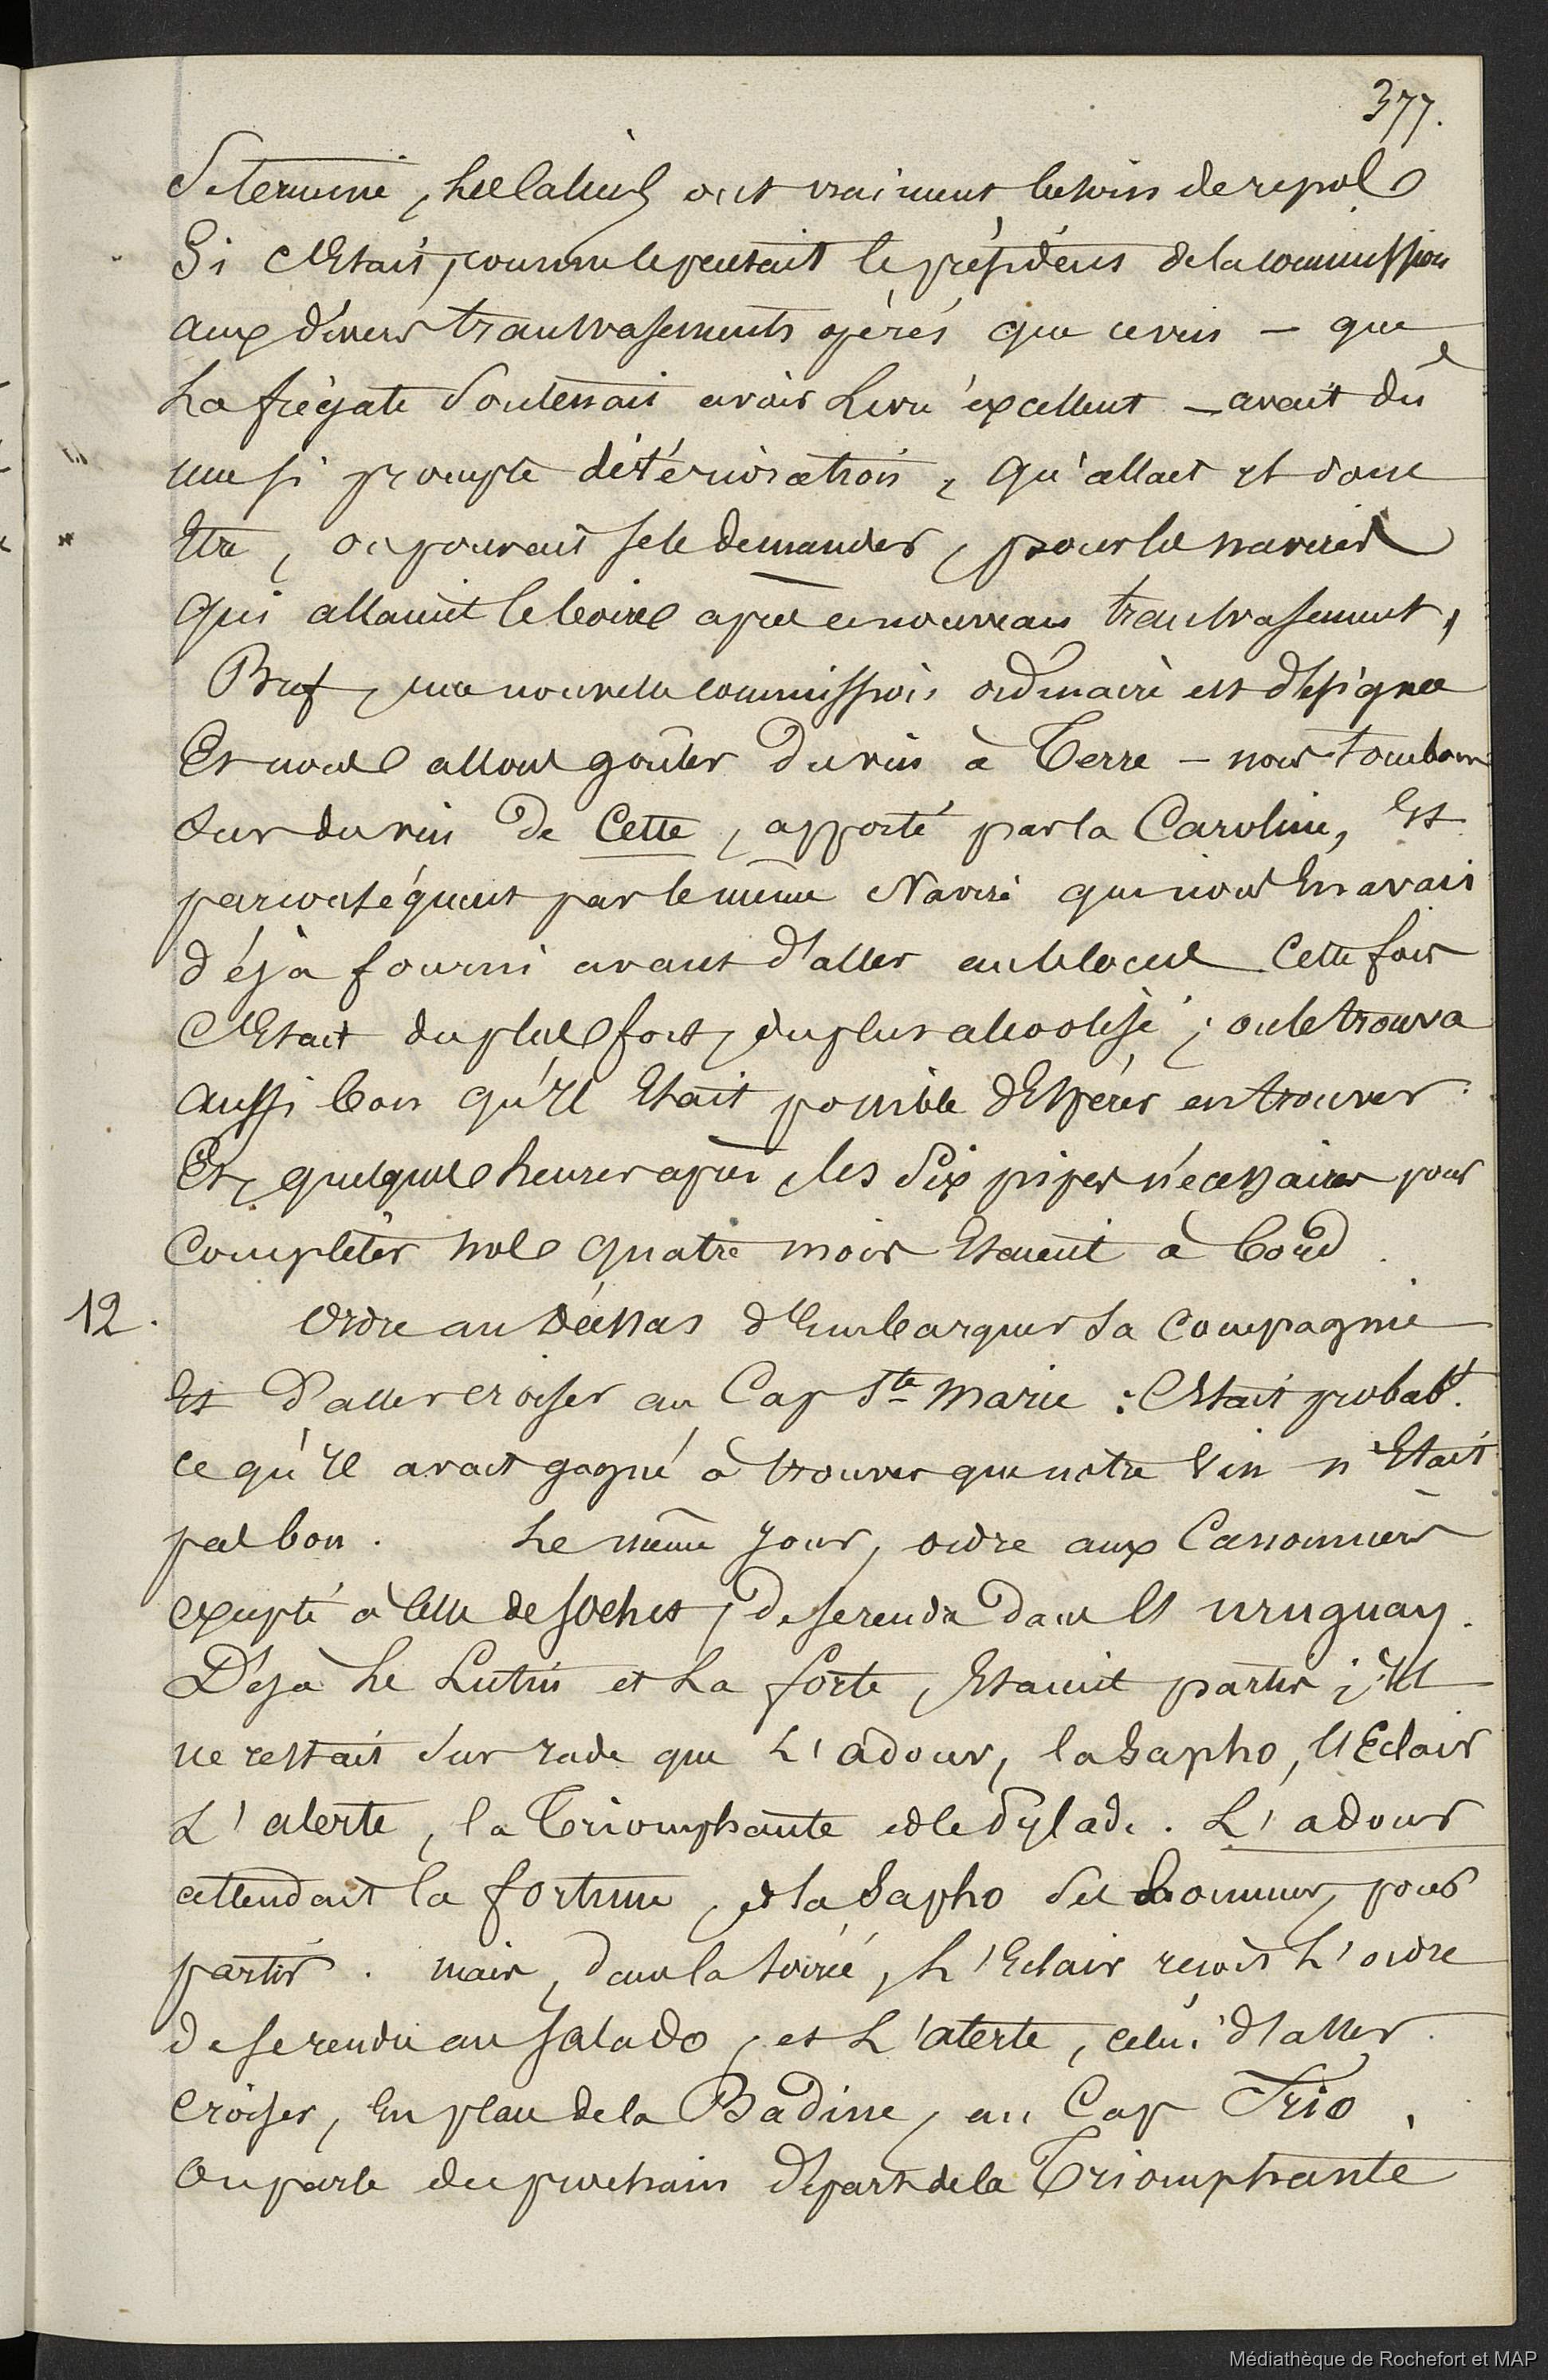 377.
se termine, les ont vraiment besoin de repos
Si c'était, comme le pensait le président de la commission
aux divers transvasements opérés que ce vin – que
La frégate soutenait avoir livré excellent – avait dû
une si prompte détérioration, qu'allait il donc
Etre, on pouvait se le demander, pour les navires
qui allaient le boire après ce nouveau transvasement,
Bref, une nouvelle commission ordinaire est désignée
Et nous allons goûter du vin à Terre – nous tombons
sur du vin de Cette, apporté par la Caroline, Et
par conséquent par le même Navire qui nous En avait
déjà fourni avant d'aller au blocus Cette fois
c'Etait du plus fort, du plus alcoolisé ; on le trouva
aussi bon qu'Il Etait possible d'Espérer en trouver.
Et, quelques heures après, les six pipes nécessaires pour
Completer nos quatre mois Etaient à bord.
12. Ordre au Dassas d'Embarquer sa compagnie
Et d'aller croiser au Cap Ste Marie : c'Etait probabt.
ce qu'Il avait gagné à trouver que notre vin n'Etait
pas bon. Le même jour, ordre aux Canonnières
excepté à celle de Sochet, de se rendre dans l' uruguay.
Déjà Le Lutin et La forte, Etaient partis ; Il
ne restait sur rade que L'adour, la Sapho, l'Eclair
L'alerte, la Triomphante et le Pylade. L'adour
attendait la fortune, et la Sapho ses hommes, pour
partir. mais, dans la soirée, L'Eclair reçoit L'ordre
de se rendre au Salado, et L'alerte, celui d'aller
Croiser, En place de la Badine, au Cap Frio.
On parle du prochain départ de la Triomphante
Médiathèque de Rochefort et MAP